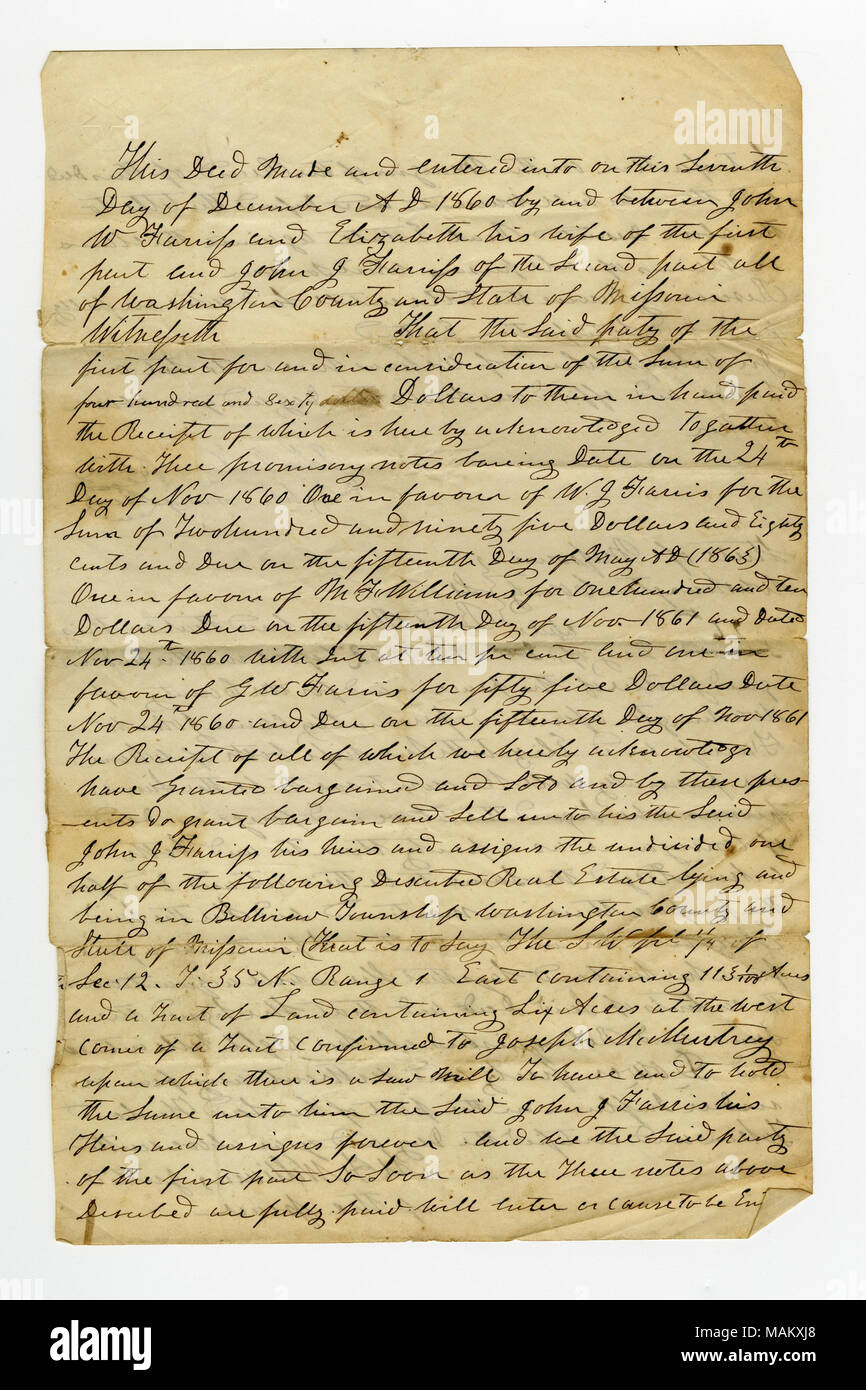 This Deed Made and entered into on this Seventh
Day of December A D 1860 by and between John
W Farriss and Elizabeth his wife of the first
part and John J Farriss of the Second part all
of Washington County and State of Missouri
Witnesseth That the Said party of the
first part for and in consideration of the Sum of
four hundred and Sexty Dollars to them in hand paid
the Receipt of which is here by acknowledged Togather
with Thee promisory notes bareing Date on the 24th
Day of Nov 1860 One in favour of W. J Farris for the
Sum of Two hundred and ninety five Dollars and Eighty
cents and Due on the fifteenth Day of May AD
One in favour of M F Williams for one hundred and ten
Dollars Due on the fifteenth Day of Nov 1861 and Dated
Nov 24th 1860 with Int at ten pr cent and one in
favour of G W Farris for fifty five Dollars Date
Nov 24th 1860 and Due on the fifteenth Day of Nov 1861
The Receipt of all of which we hereby acknowledge
have Granted bargained and Sold and by these pres-
-ents do grant bargain and Sell unto his the Said
John J Farriss his heirs and assigns the undivided one
half of the following Described Real Estate lying and
being in Bellview Township Washington County and
State of Missouri (that is to Say The S W frl 1/4 of
Sec 12. T. 35 N. Range 1 East containing 113 Acres
and a Tract of Land containing Six Acres at the west
corner of a Tract Confirmed to Joseph McMurtrey
upon which there is a Saw Mill To have and to hold
the Same unto him the Said John J Farris his
Heirs and assigns forever and we the Said party
of the first part So Soon as the Three notes above
Described are fully paid will enter or cause to be En
alamy
Image ID: MAKXJ8
www.alamy.com